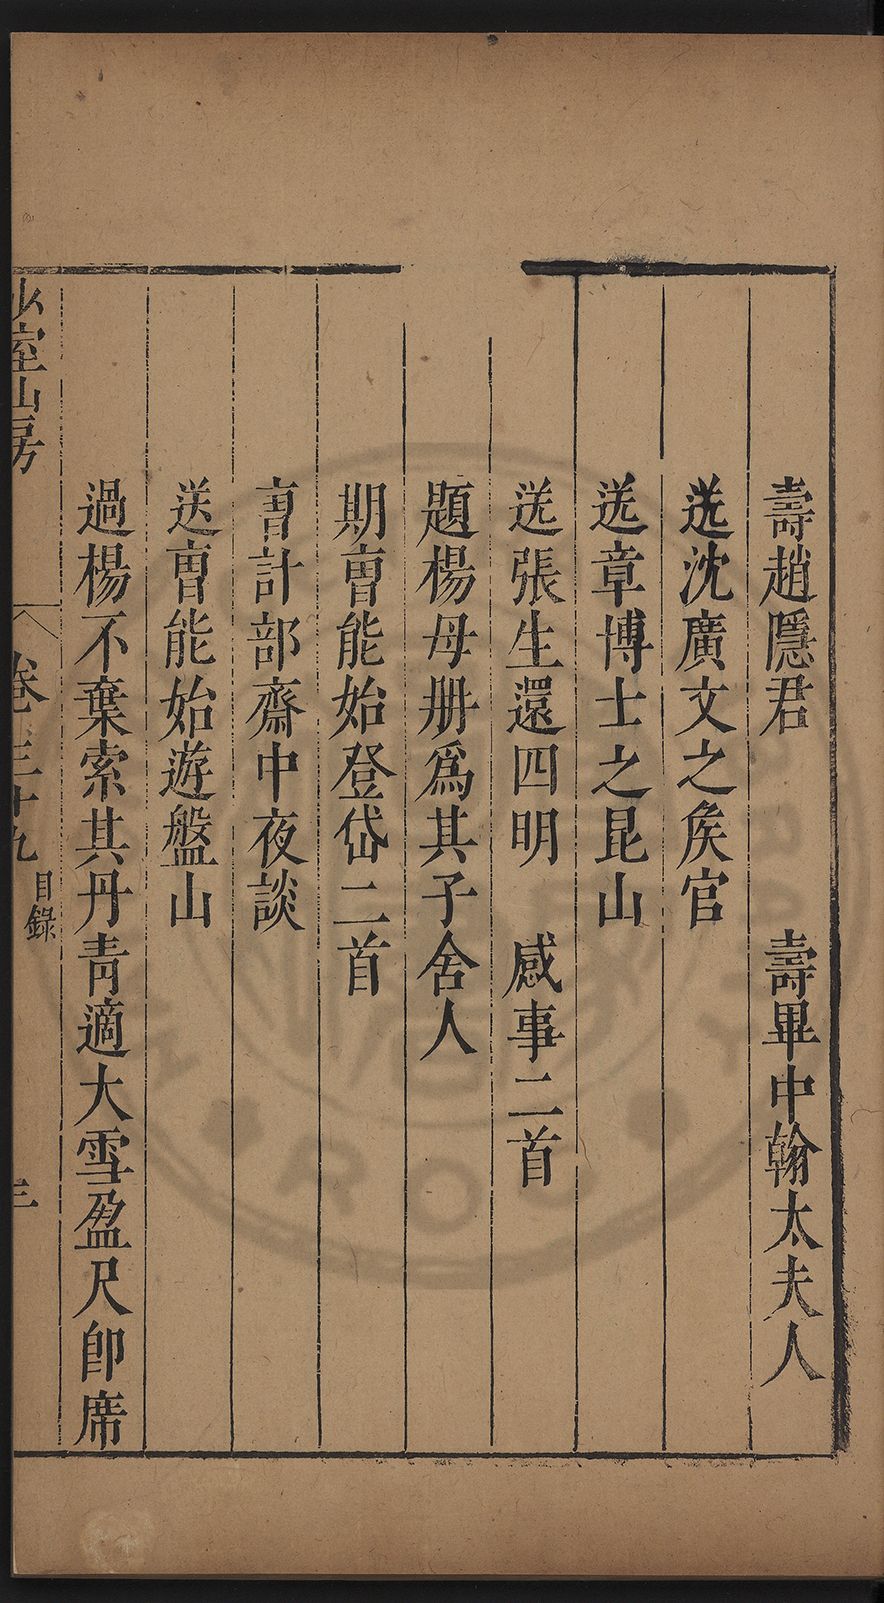 壽趙隱君　壽畢中翰太夫人
送沈廣文之矦官
送章博士之昆山
送張生還四明　感事二首
題楊母册爲其子舍人
期曺能始登岱二首
曺計部齋中夜談
送曺能始遊盤山
過楊不棄索其丹靑適大雪盈尺卽席
少室山房　卷三十九　目錄　三